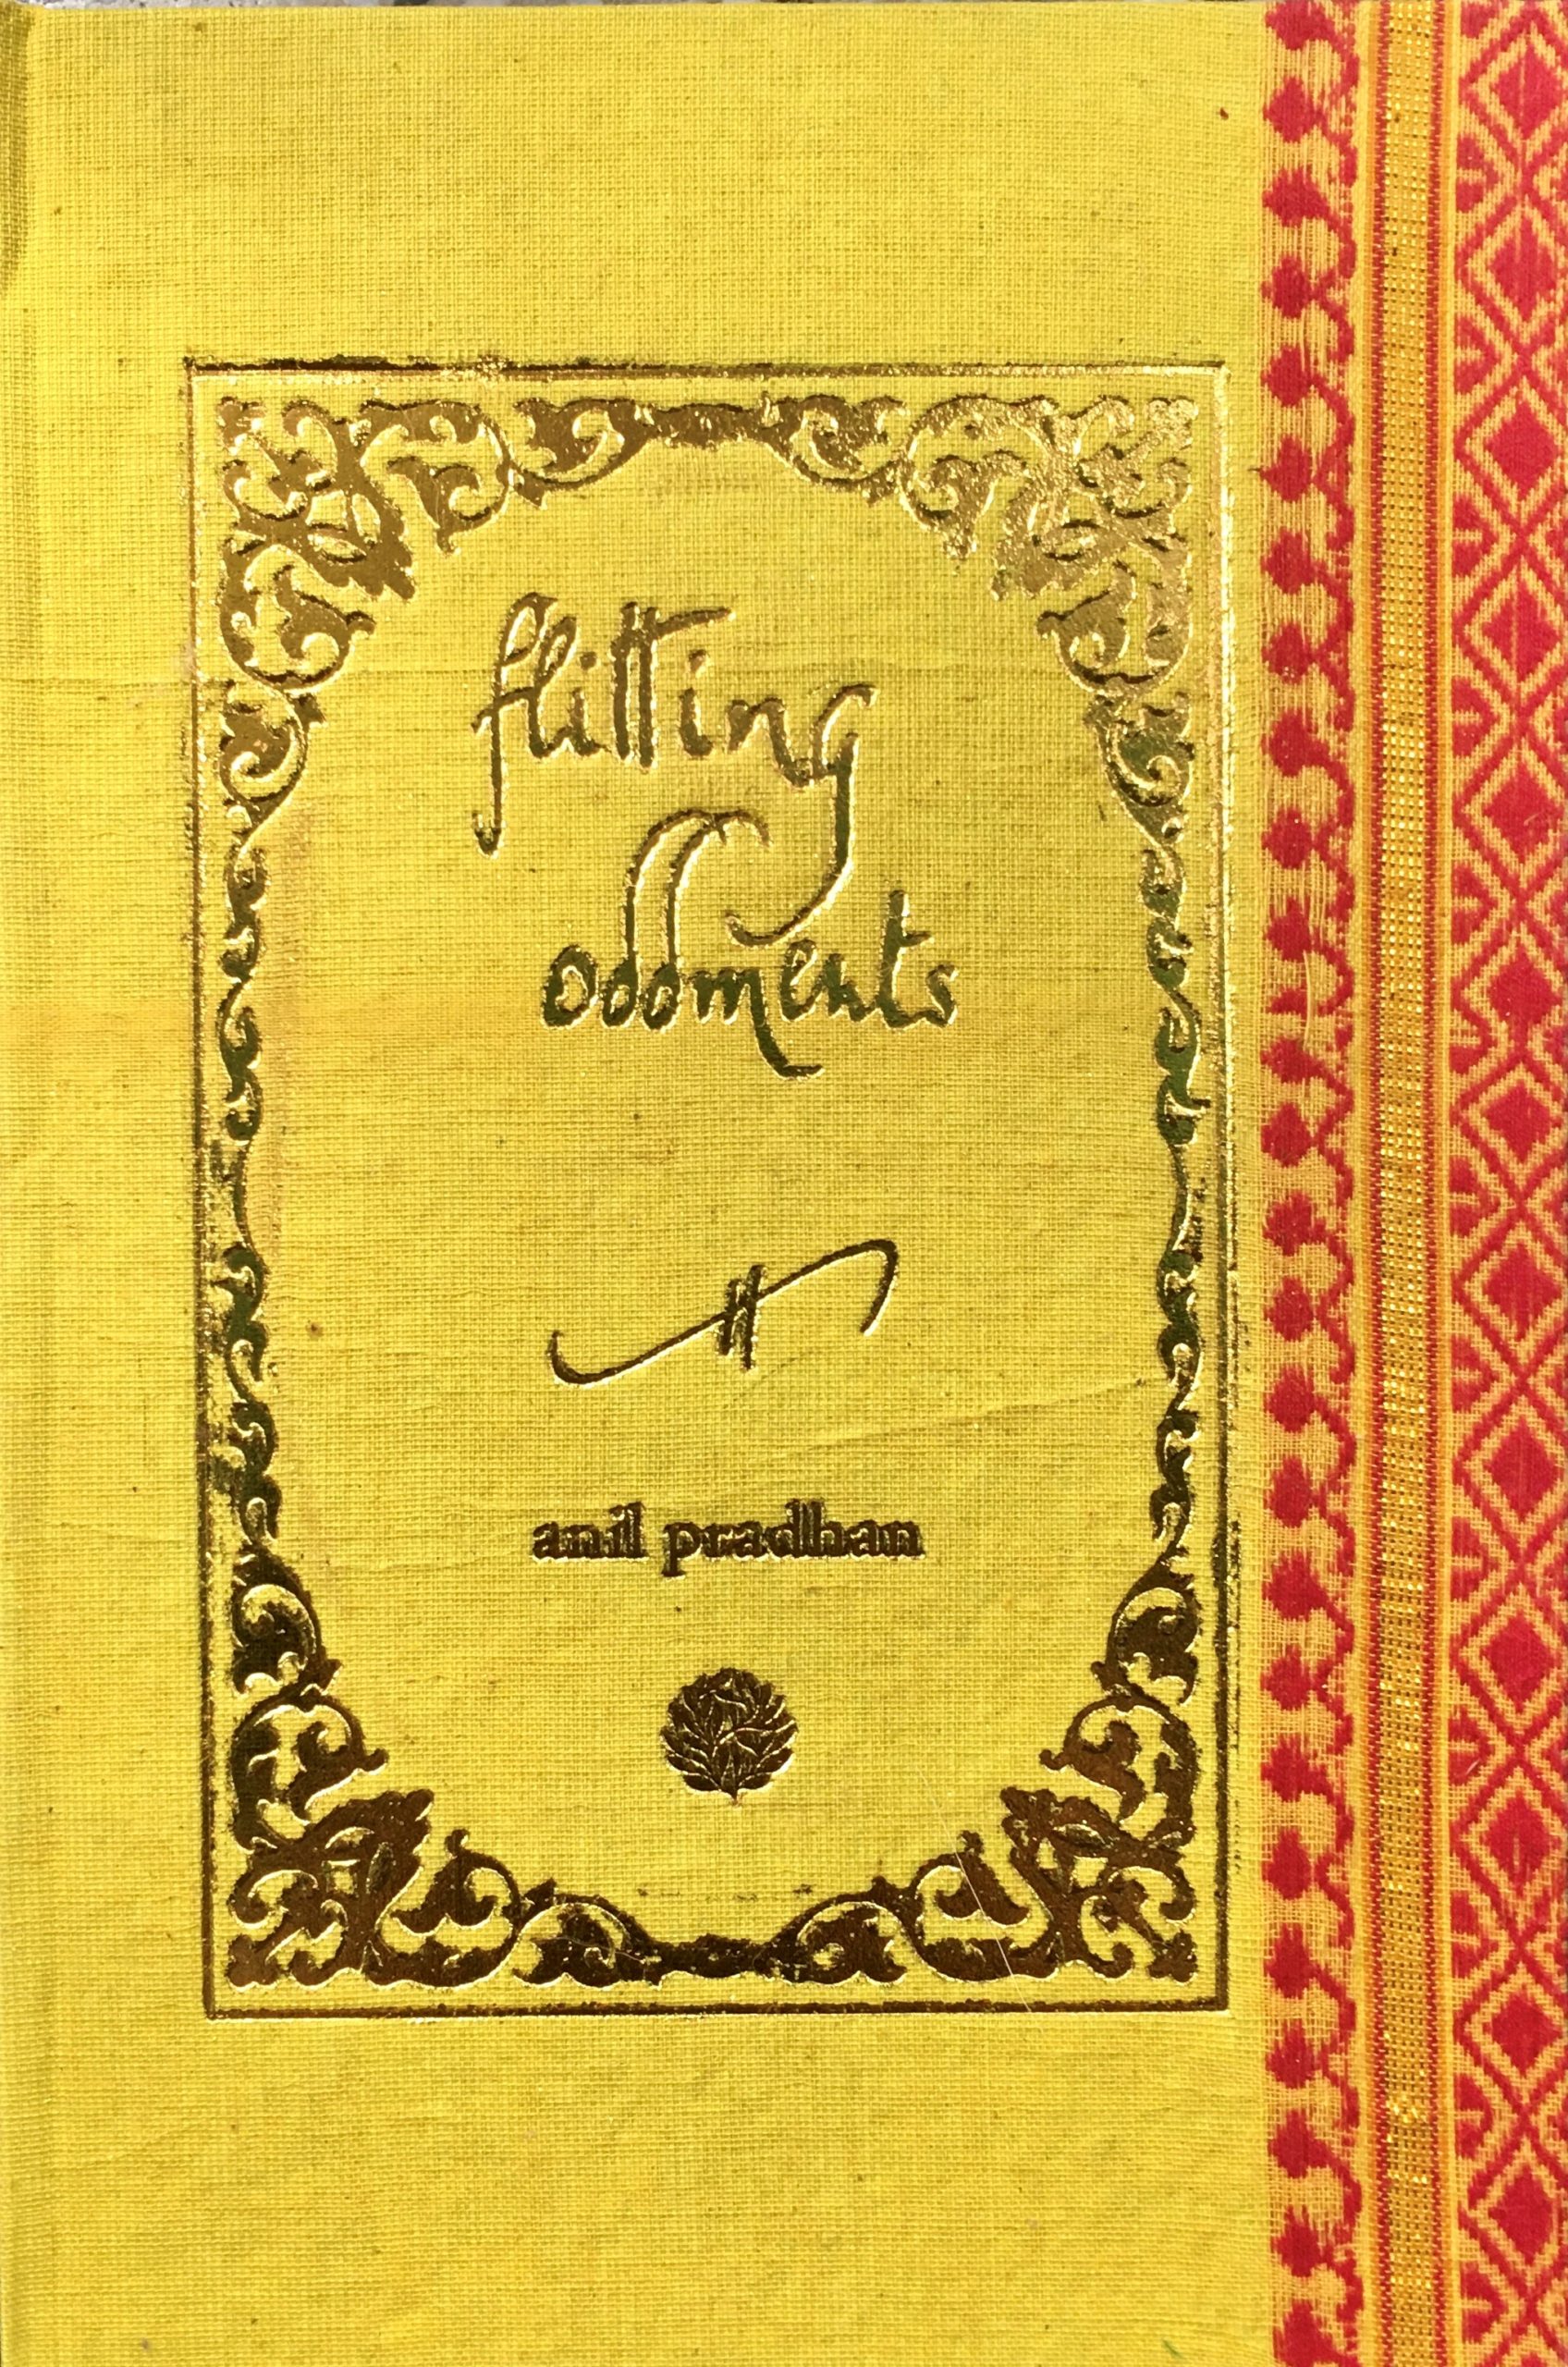 flitting
oddments
anil pradhan